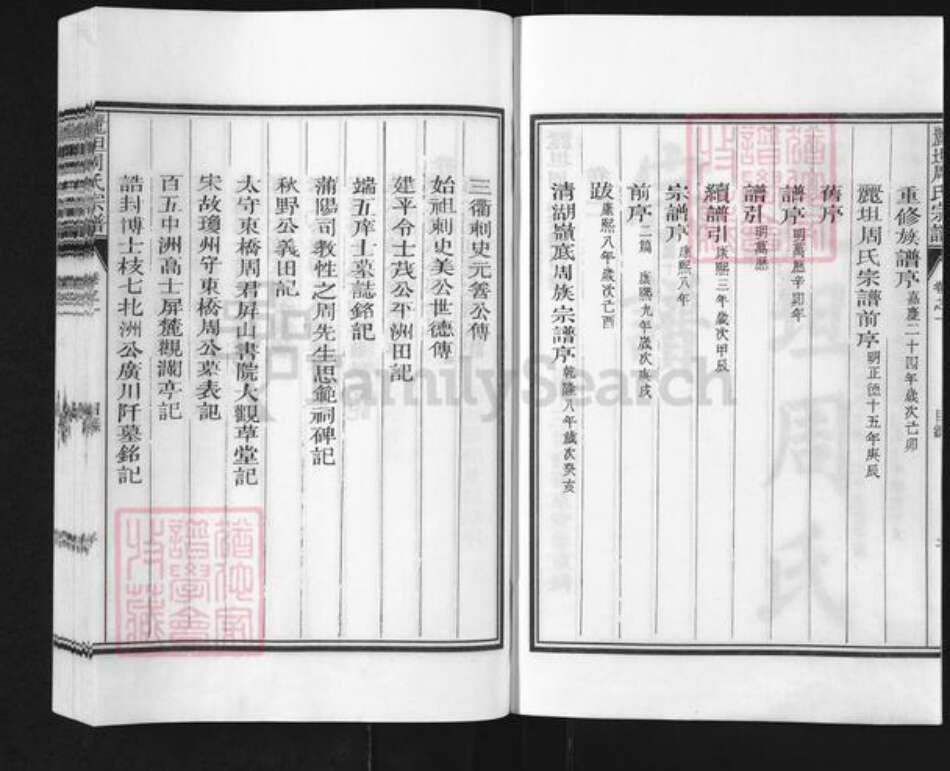 麗坦周氏宗譜
重修族譜序 嘉慶二十四年歲次己卯
麗坦周氏宗譜前序 明正德十五年庚辰
舊序
譜序 明萬歷辛卯年
譜引 明萬歷
續譜引 康熙三年歲次甲辰
宗譜序 康熙八年
前序 二篇 康熙九年歲次庚戌
跋 康熙八年歲次己酉
清湖嶺底周族宗譜序 乾隆八年歲次癸亥
三衢刺史元詧公傳
始祖刺史美公世德傳
建平令士茂公平洲田記
端五庠士墓誌銘記
蒲陽司教性之周先生思範祠碑記
秋野公義田記
太守東橋周君屏山書院大觀草堂記
宋故瓊州守東橋周公墓表記
百五中洲高士屏麓觀瀾亭記
誥封博士枝七北洲公廣川阡墓銘記
麗坦周氏宗譜
FamilySearch
譜學會
收藏